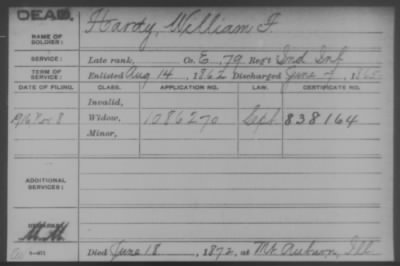 DEAD.
NAME OF SOLDIER: Hardy, William F.
SERVICE: Late rank, Co. E, 79 Reg't Ind Inf
TERM OF SERVICE: Enlisted Aug 14, 1862 Discharged June 7, 1865
DATE OF FILING. CLASS. APPLICATION NO. LAW. CERTIFICATE NO.
Invalid,
1916 Nov 8 Widow, 1086270 Sept. 838164
Minor,
ADDITIONAL SERVICES:
M.M.
Died June 18, 1872, at Mt. Auburn, Ill